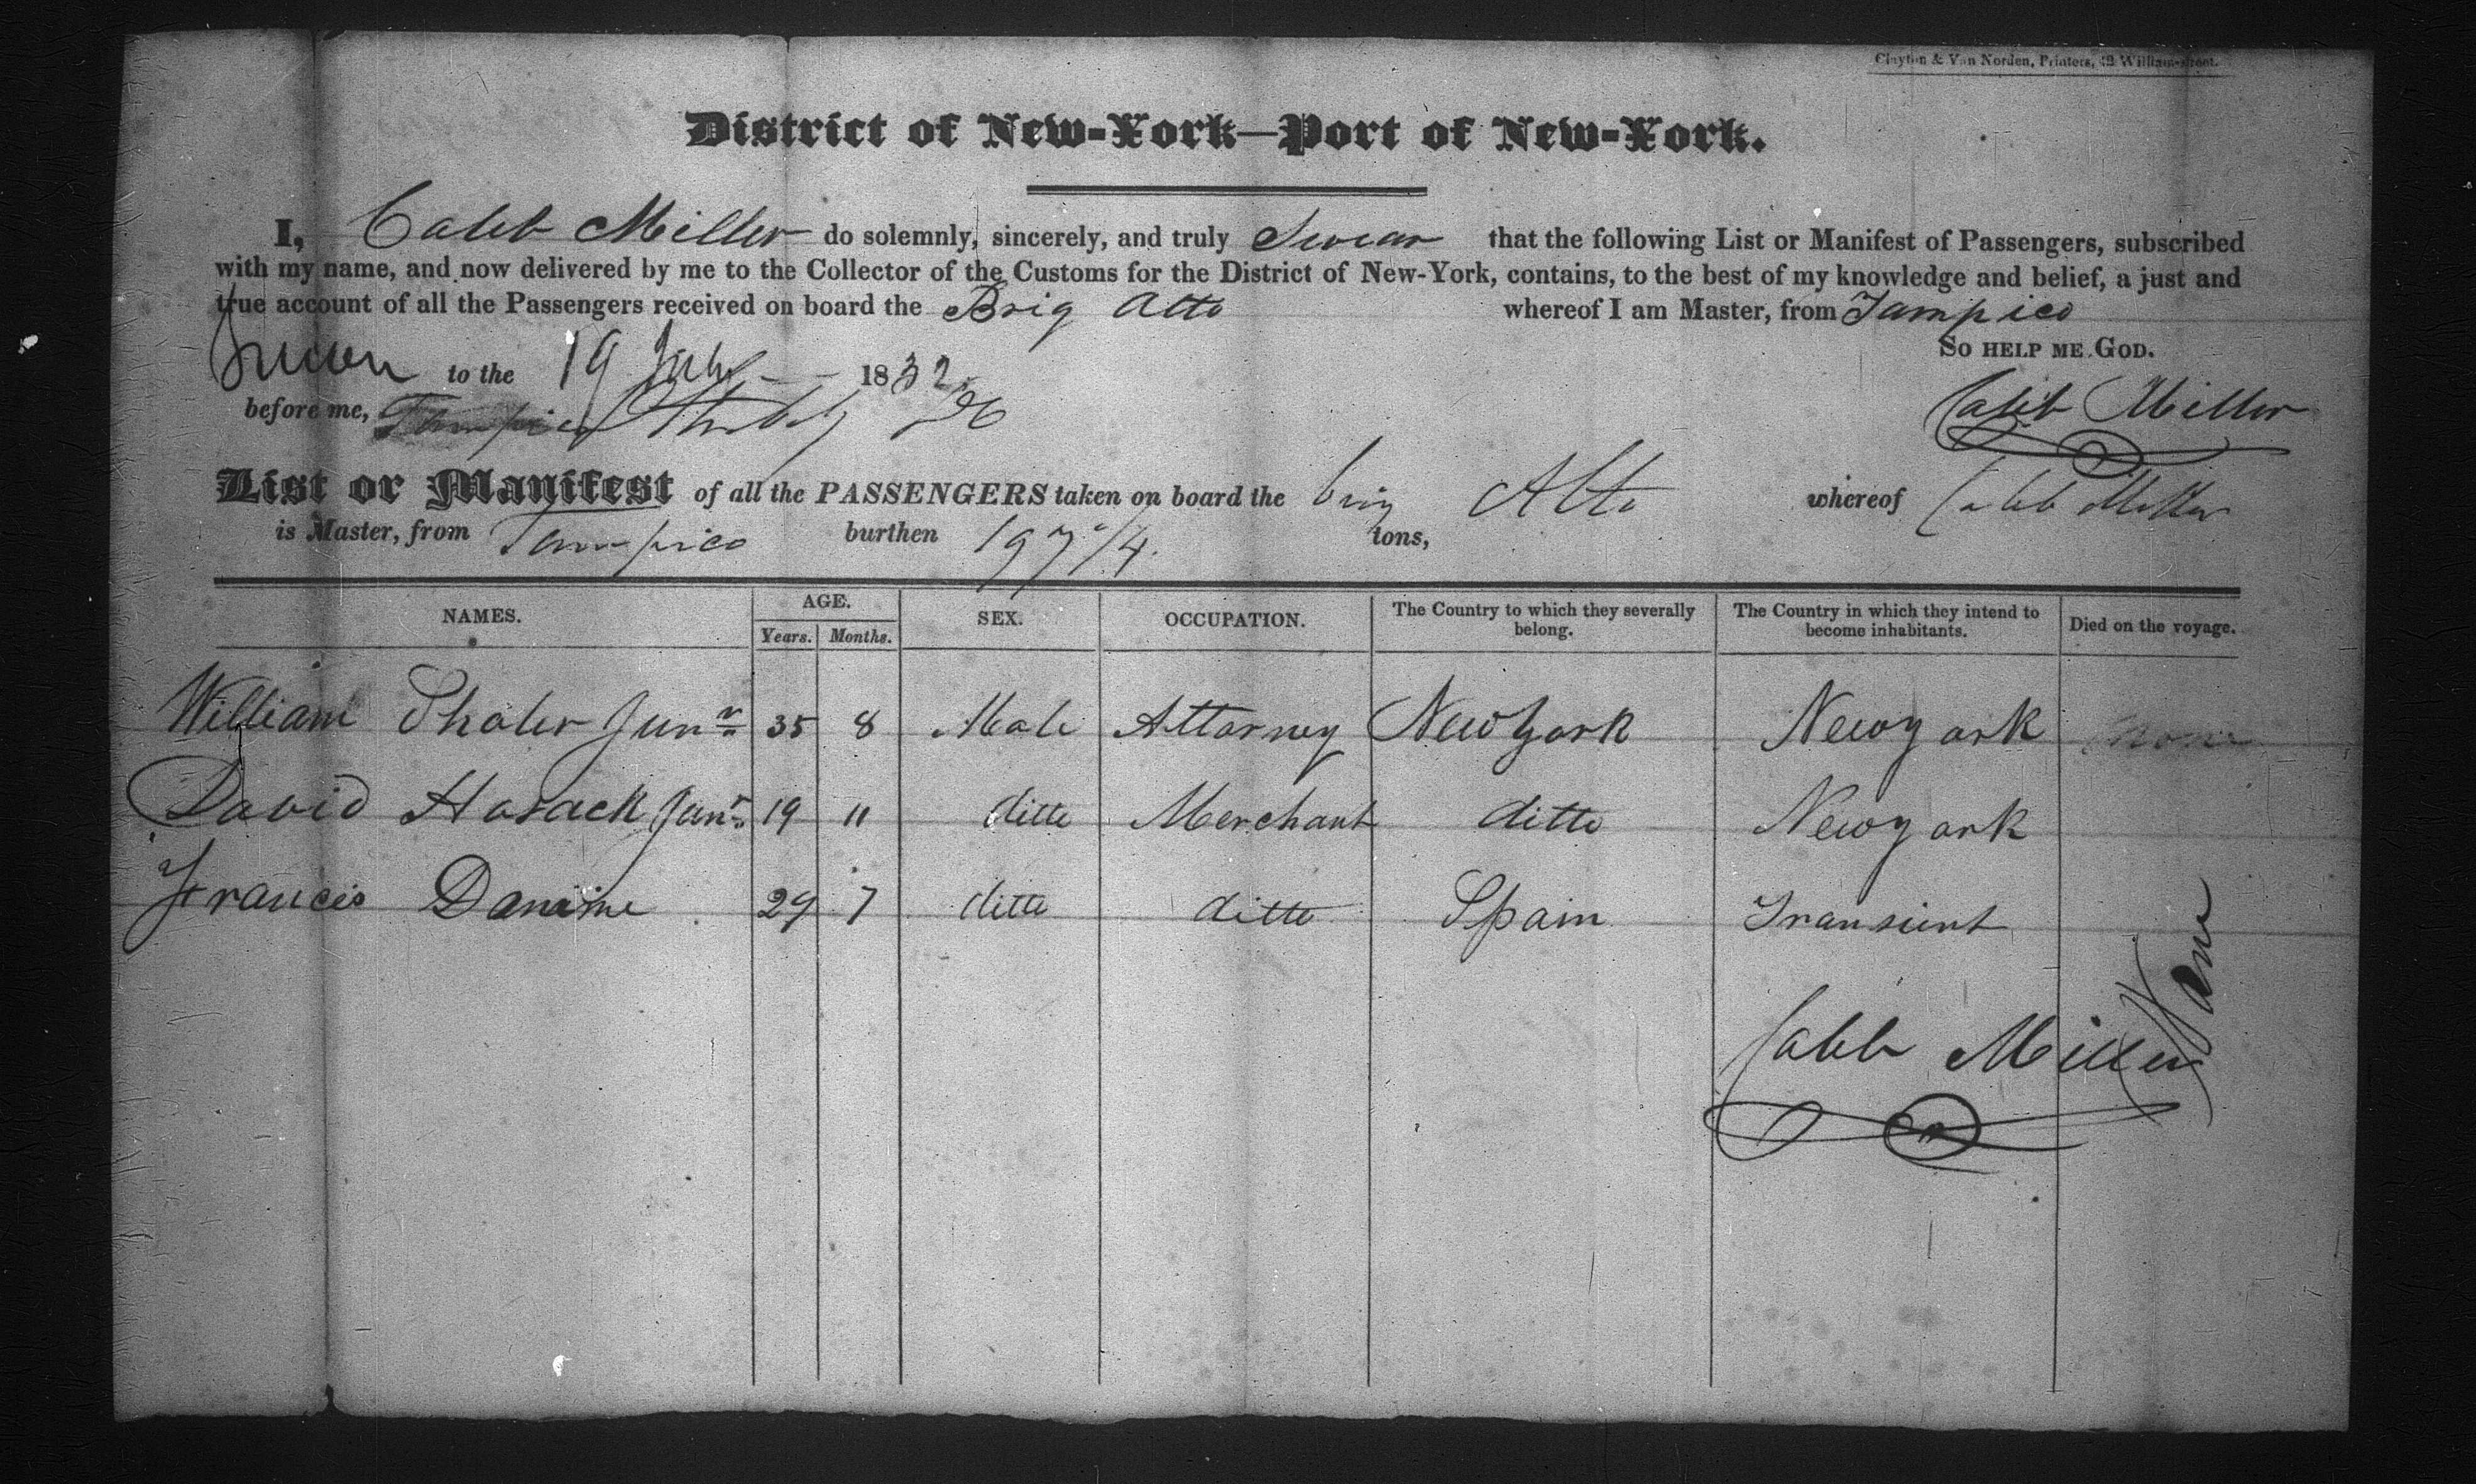 Clayton & Van Norden, Printers, 49 William-street.
District of New-York—Port of New-York.
I, Caleb Miller do solemnly, sincerely, and truly Swear that the following List or Manifest of Passengers, subscribed
with my name, and now delivered by me to the Collector of the Customs for the District of New-York, contains, to the best of my knowledge and belief, a just and
true account of all the Passengers received on board the Brig Alto whereof I am Master, from Tampico
SO HELP ME GOD.
Sworn to the 19 July 1832
before me, Caleb Miller
List or Manifest of all the PASSENGERS taken on board the brig Alto whereof Caleb Miller
is Master, from Tampico burthen 197 /4 tons,
NAMES. AGE. SEX. OCCUPATION. The Country to which they severally belong. The Country in which they intend to become inhabitants. Died on the voyage.
Years. Months.
William Thaler Junr 35 8 Male Attorney New York New york None
David Hosack Junr 19 11 ditto Merchant ditto New york
Francis 29 7 ditto ditto Spain Transient
None
Caleb Miller